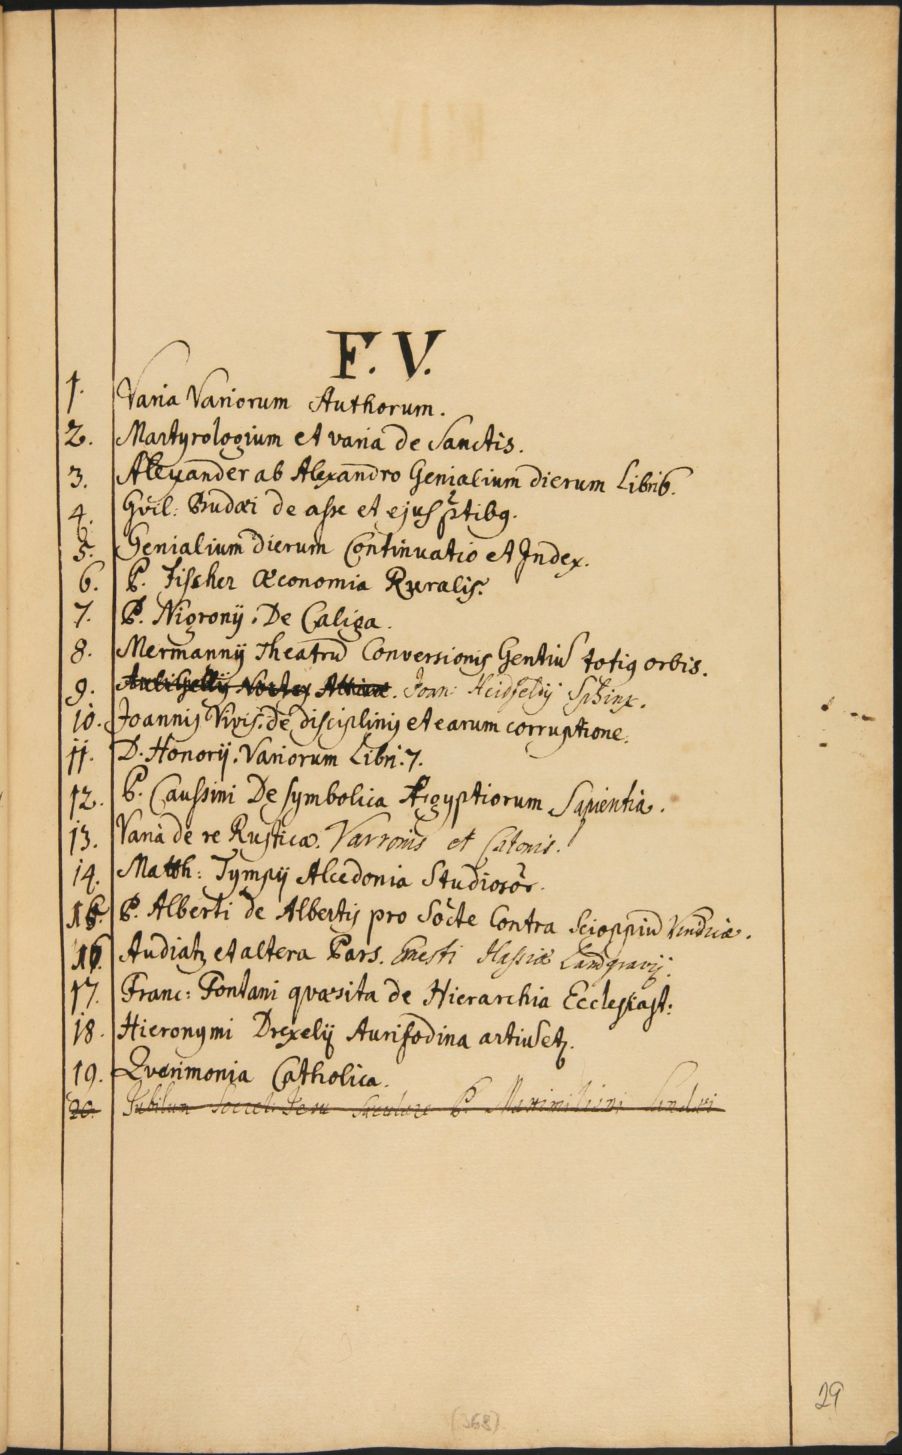 F. V.
1. Varia Variorum Authorum.
2. Martyrologium et varia de Sanctis.
3. Alexander ab Alexandro Genialium dierum Librib.
4. Guil: Budæi de asse et ejus ptibq.
5. Genialium dierum Continuatio et Index.
6. P. Fischer Œconomia Ruralis.
7. P. Nigronij. De Caliga.
8. Mermannij Theatrũ Conversionis Gentiũ totiq orbis.
9. Auli Gellij Noctes Atticæ. Joan: Heidfeldij Sphinx.
10. Joannis Vivis. de disciplinis et earum corruptione.
11. D. Honorij. Variorum Libri. 7.
12. P. Caussini De symbolica Ægyptiorum Sapientia.
13. Varia de re Rustica. Varronis et Catonis.
14. Matth: Tympij Alcedonia Studiosõr.
15. P. Alberti de Albertis pro Socte Contra Scioppiũ Vindiciæ.
16. Audiatz et altera Pars. Ernesti Hassiæ Landgravij.
17. Franc: Fontani quæsita de Hierarchia Ecclesiast:
18. Hieronymi Drexelij Aurifodina artiũ etz.
19. Querimonia Catholica.
20. Jubilum Societ: Jesu Sæculare P. Maximiliani Sandæi
29
(368)